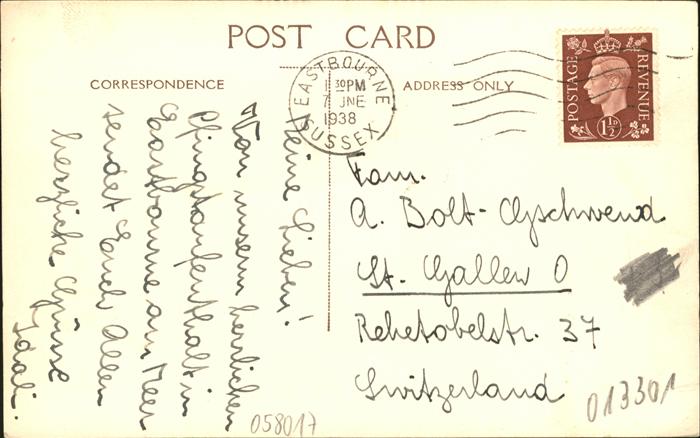 POST CARD
CORRESPONDENCE
ADDRESS ONLY
EASTBOURNE
1 30PM
7 JNE
1938
SUSSEX
POSTAGE
REVENUE
1½D
Meine Lieben!
Von unserm herrlichen
Pfingstaufenthalt in
Eastbourne am Meer
sendet Euch Allen
herzliche Grüsse
Idali.
Fam.
A. Bolt-Gschwend
St. Gallen O
Rehetobelstr. 37
Switzerland
058017
013301